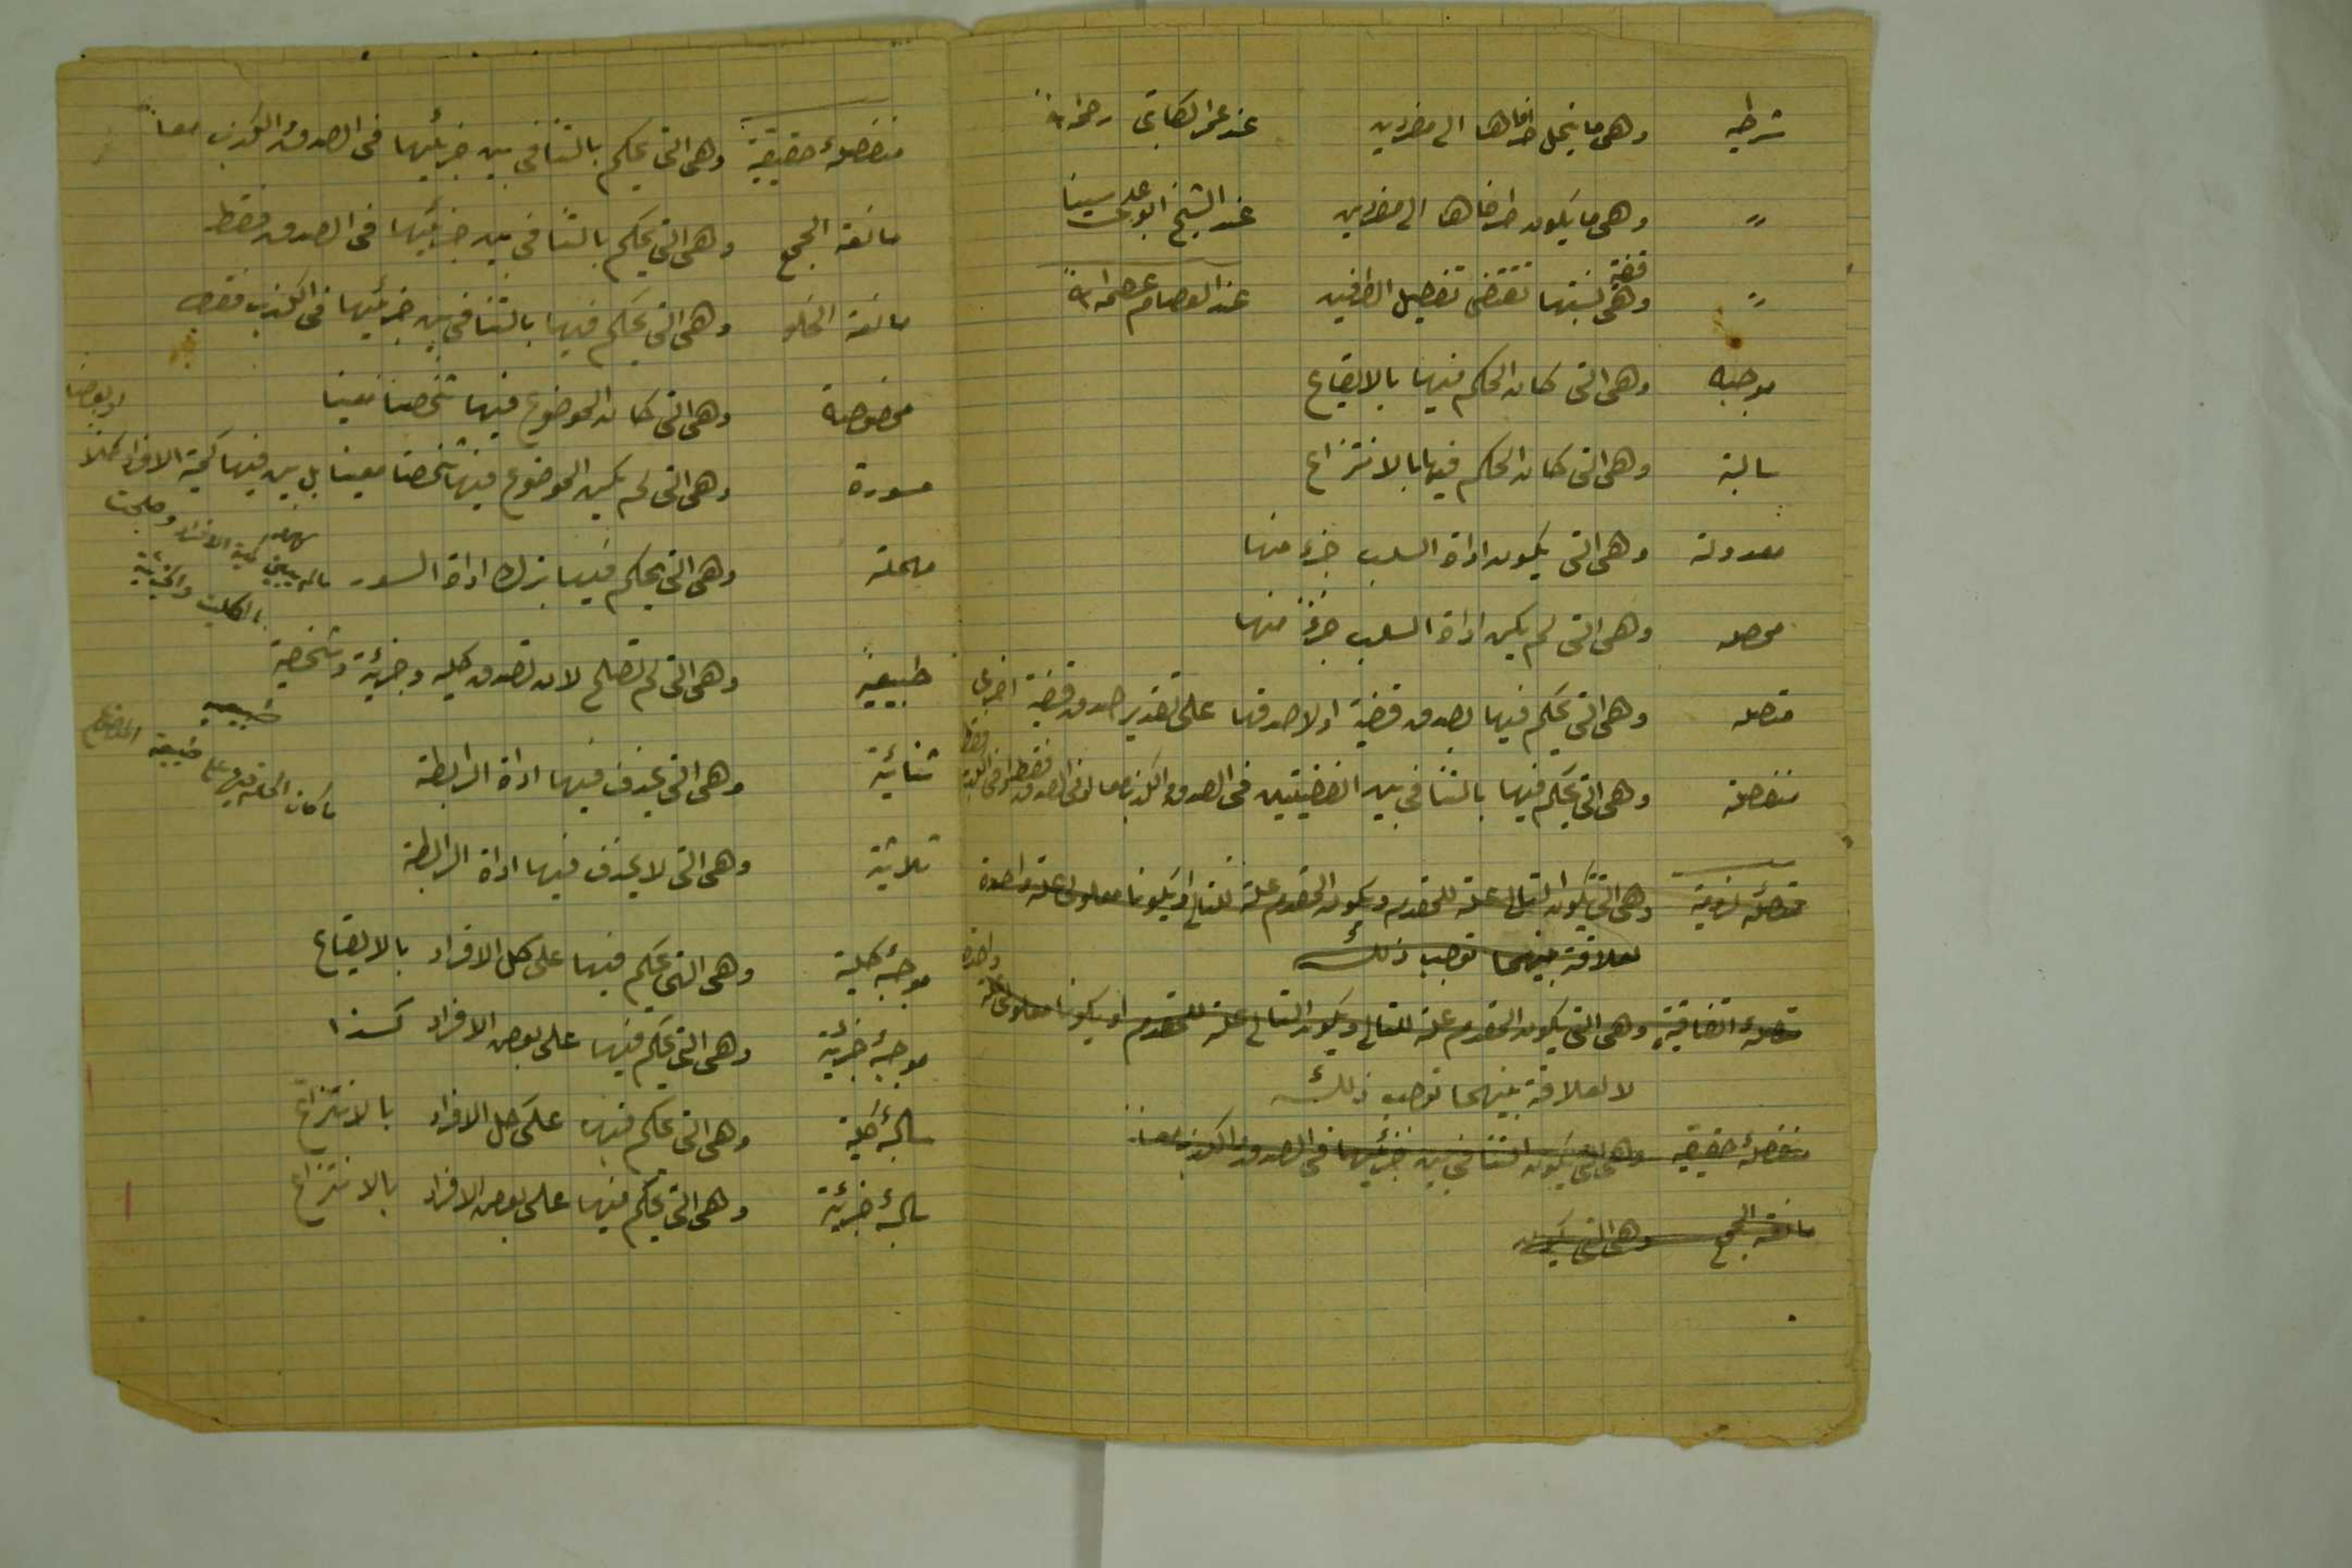 شرطيه وهى ما ينحل طرفاها الى مفردين عند عمر الكاتبى رحمه الله
〃 وهى ما يكون طرفاها الى مفردين عند الشيخ ابو على سينا
〃 وهى قضية نسبتها تقتضى تفصيل الطرفين عند العصام عصمه الله
موجبه وهى التى كان الحكم فيها بالايقاع
سالبة وهى التى كان الحكم فيها بالانتزاع
معدولة وهى التى يكون اداة السلب جزء منها
محصله وهى التى لم يكن اداة السلب جزءً منها
متصله وهى التى يحكم فيها بصدق قضية او لا صدقها على تقدير صدق قضية اخرى
منفصلة وهى التى يحكم فيها بالتنافى بين القضيتين فى الصدق والكذب معا او فى الصدق فقط او فى الكذب فقط
متصلهٔ لزومية وهى التى يكون التالى علة للمقدم ويكون المقدم علة للتالى او يكونا معلولى علة واحدة
لعلاقة بينهما توجب ذلك
متصلهٔ اتفاقية وهى التى يكون المقدم علة للتالى ويكون التالى علة للمقدم او يكونا معلولى علة واحدة
لا لعلاقة بينهما توجب ذلك
منفصلهٔ حقيقيه وهى التى يكون التنافى بين جزئيها فى الصدق والكذب معاً
مانعة الجمع وهى التى يكون
منفصلهٔ حقيقية وهى التى يحكم بالتنافى بين جزئيها فى الصدق والكذب معاً
مانعة الجمع وهى التى يحكم بالتنافى بين جزئيها فى الصدق فقط
مانعة الخلو وهى التى يحكم فيها بالتنافى بين جزئيها فى الكذب فقط
مخصوصة وهى التى كان الموضوع فيها شخصا معينا
مسورة وهى التى لم يكن الموضوع فيها شخصا معينا بل بين فيها كمية الافراد كلاً او بعضا
مهملة وهى التى يحكم فيها بترك اداة السور
ما لم يبين فيها كمية الافراد وصلحت
بالكلية والجزئية
طبيعية وهى التى لم تصلح لان تصدق كليه وجزئية وشخصية
طبيعيه
ما كان الحكم فيها على طبيعة الموضوع
ثنائية وهى التى يحذف فيها اداة الرابطة
ثلاثية وهى التى لا يحذف فيها اداة الرابطة
موجبهٔ كلية وهى التى يحكم فيها على كل الافراد بالايقاع
موجبهٔ جزئية وهى التى يحكم فيها على بعض الافراد كذا
سالبهٔ كلية وهى التى يحكم فيها على كل الافراد بالانتزاع
سالبهٔ جزئية وهى التى يحكم فيها على بعض الافراد بالانتزاع